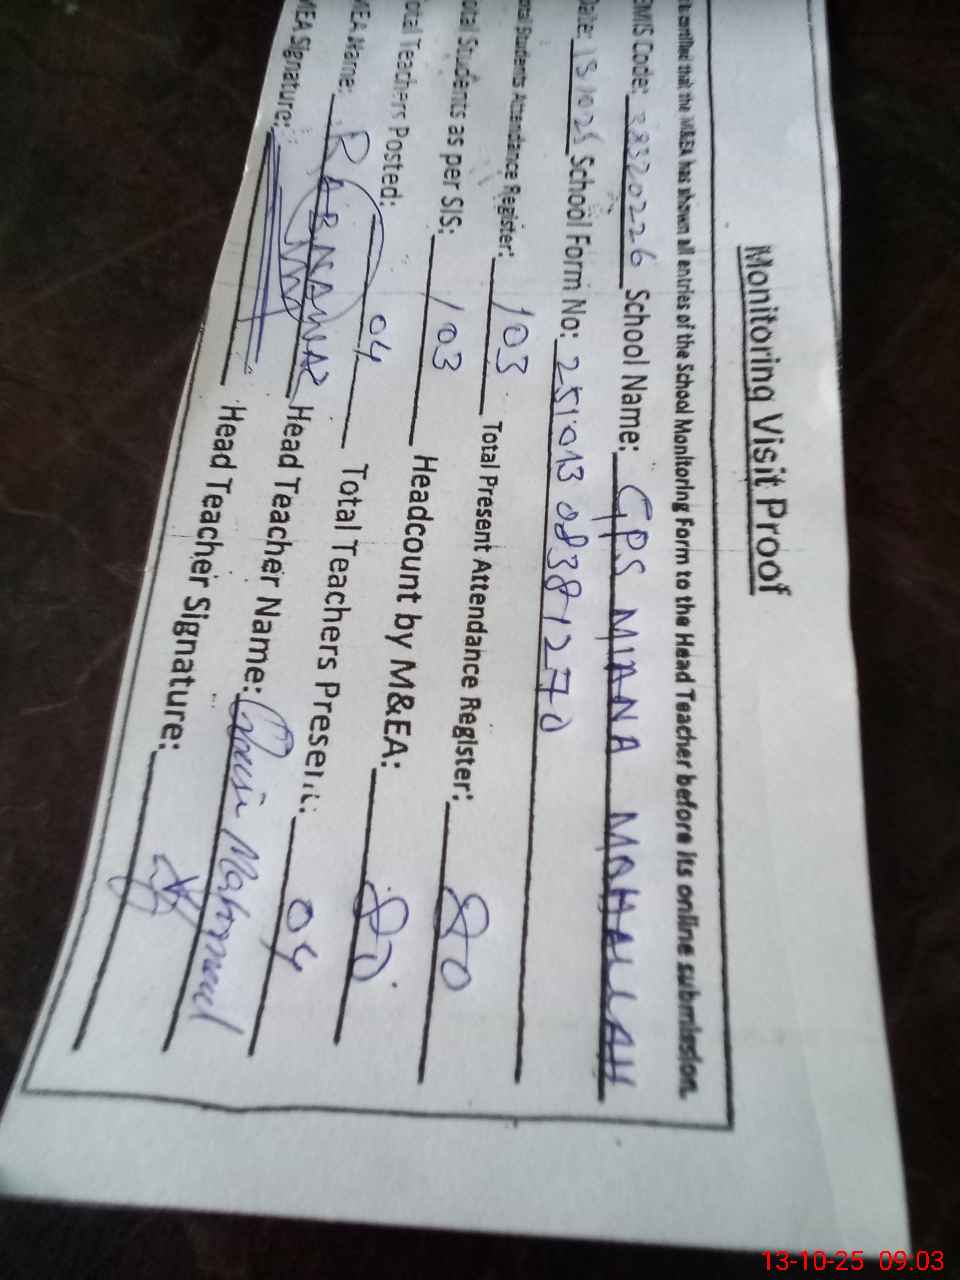 Monitoring Visit Proof
certified that the M&EA has shown all entries of the School Monitoring Form to the Head Teacher before its online submission.
EMIS Code: 38320226 School Name: GPS MIANA MOHALLAH
Date: 131025 School Form No: 25101308381270
Total Students Attendance Register: 103 Total Present Attendance Register: 80
Total Students as per SIS: 103 Headcount by M&EA: 80
Total Teachers Posted: 04 Total Teachers Present: 04
MEA Name: RABNAWAZ Head Teacher Name: Mahmood
MEA Signature: Head Teacher Signature:
13-10-25 09.03